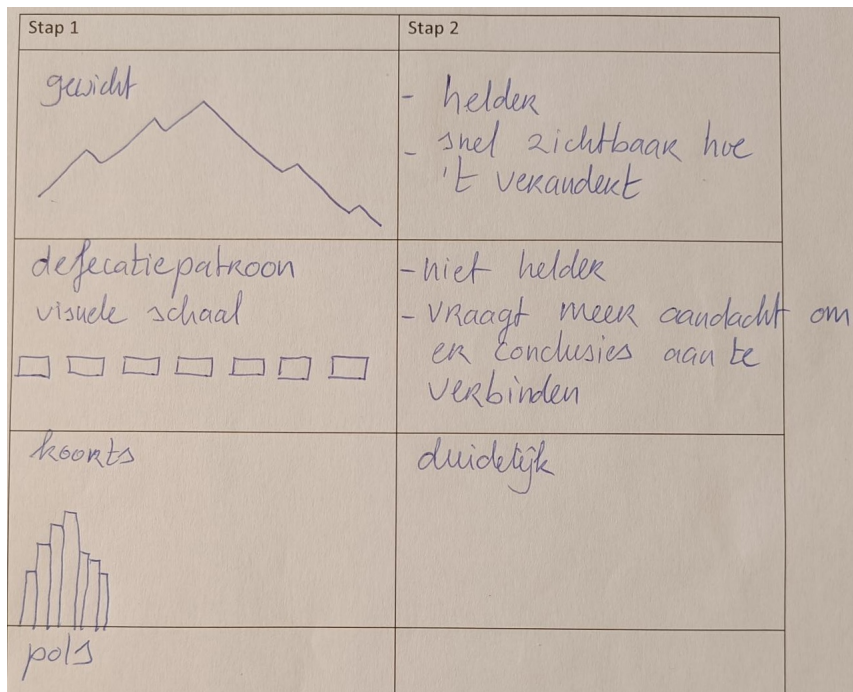 Stap 1
Stap 2
gewicht
- helder
- snel zichtbaar hoe
't verandert
defecatiepatroon
visuele schaal
- niet helder
- vraagt meer aandacht om
er conclusies aan te
verbinden
koorts
duidelijk
pols